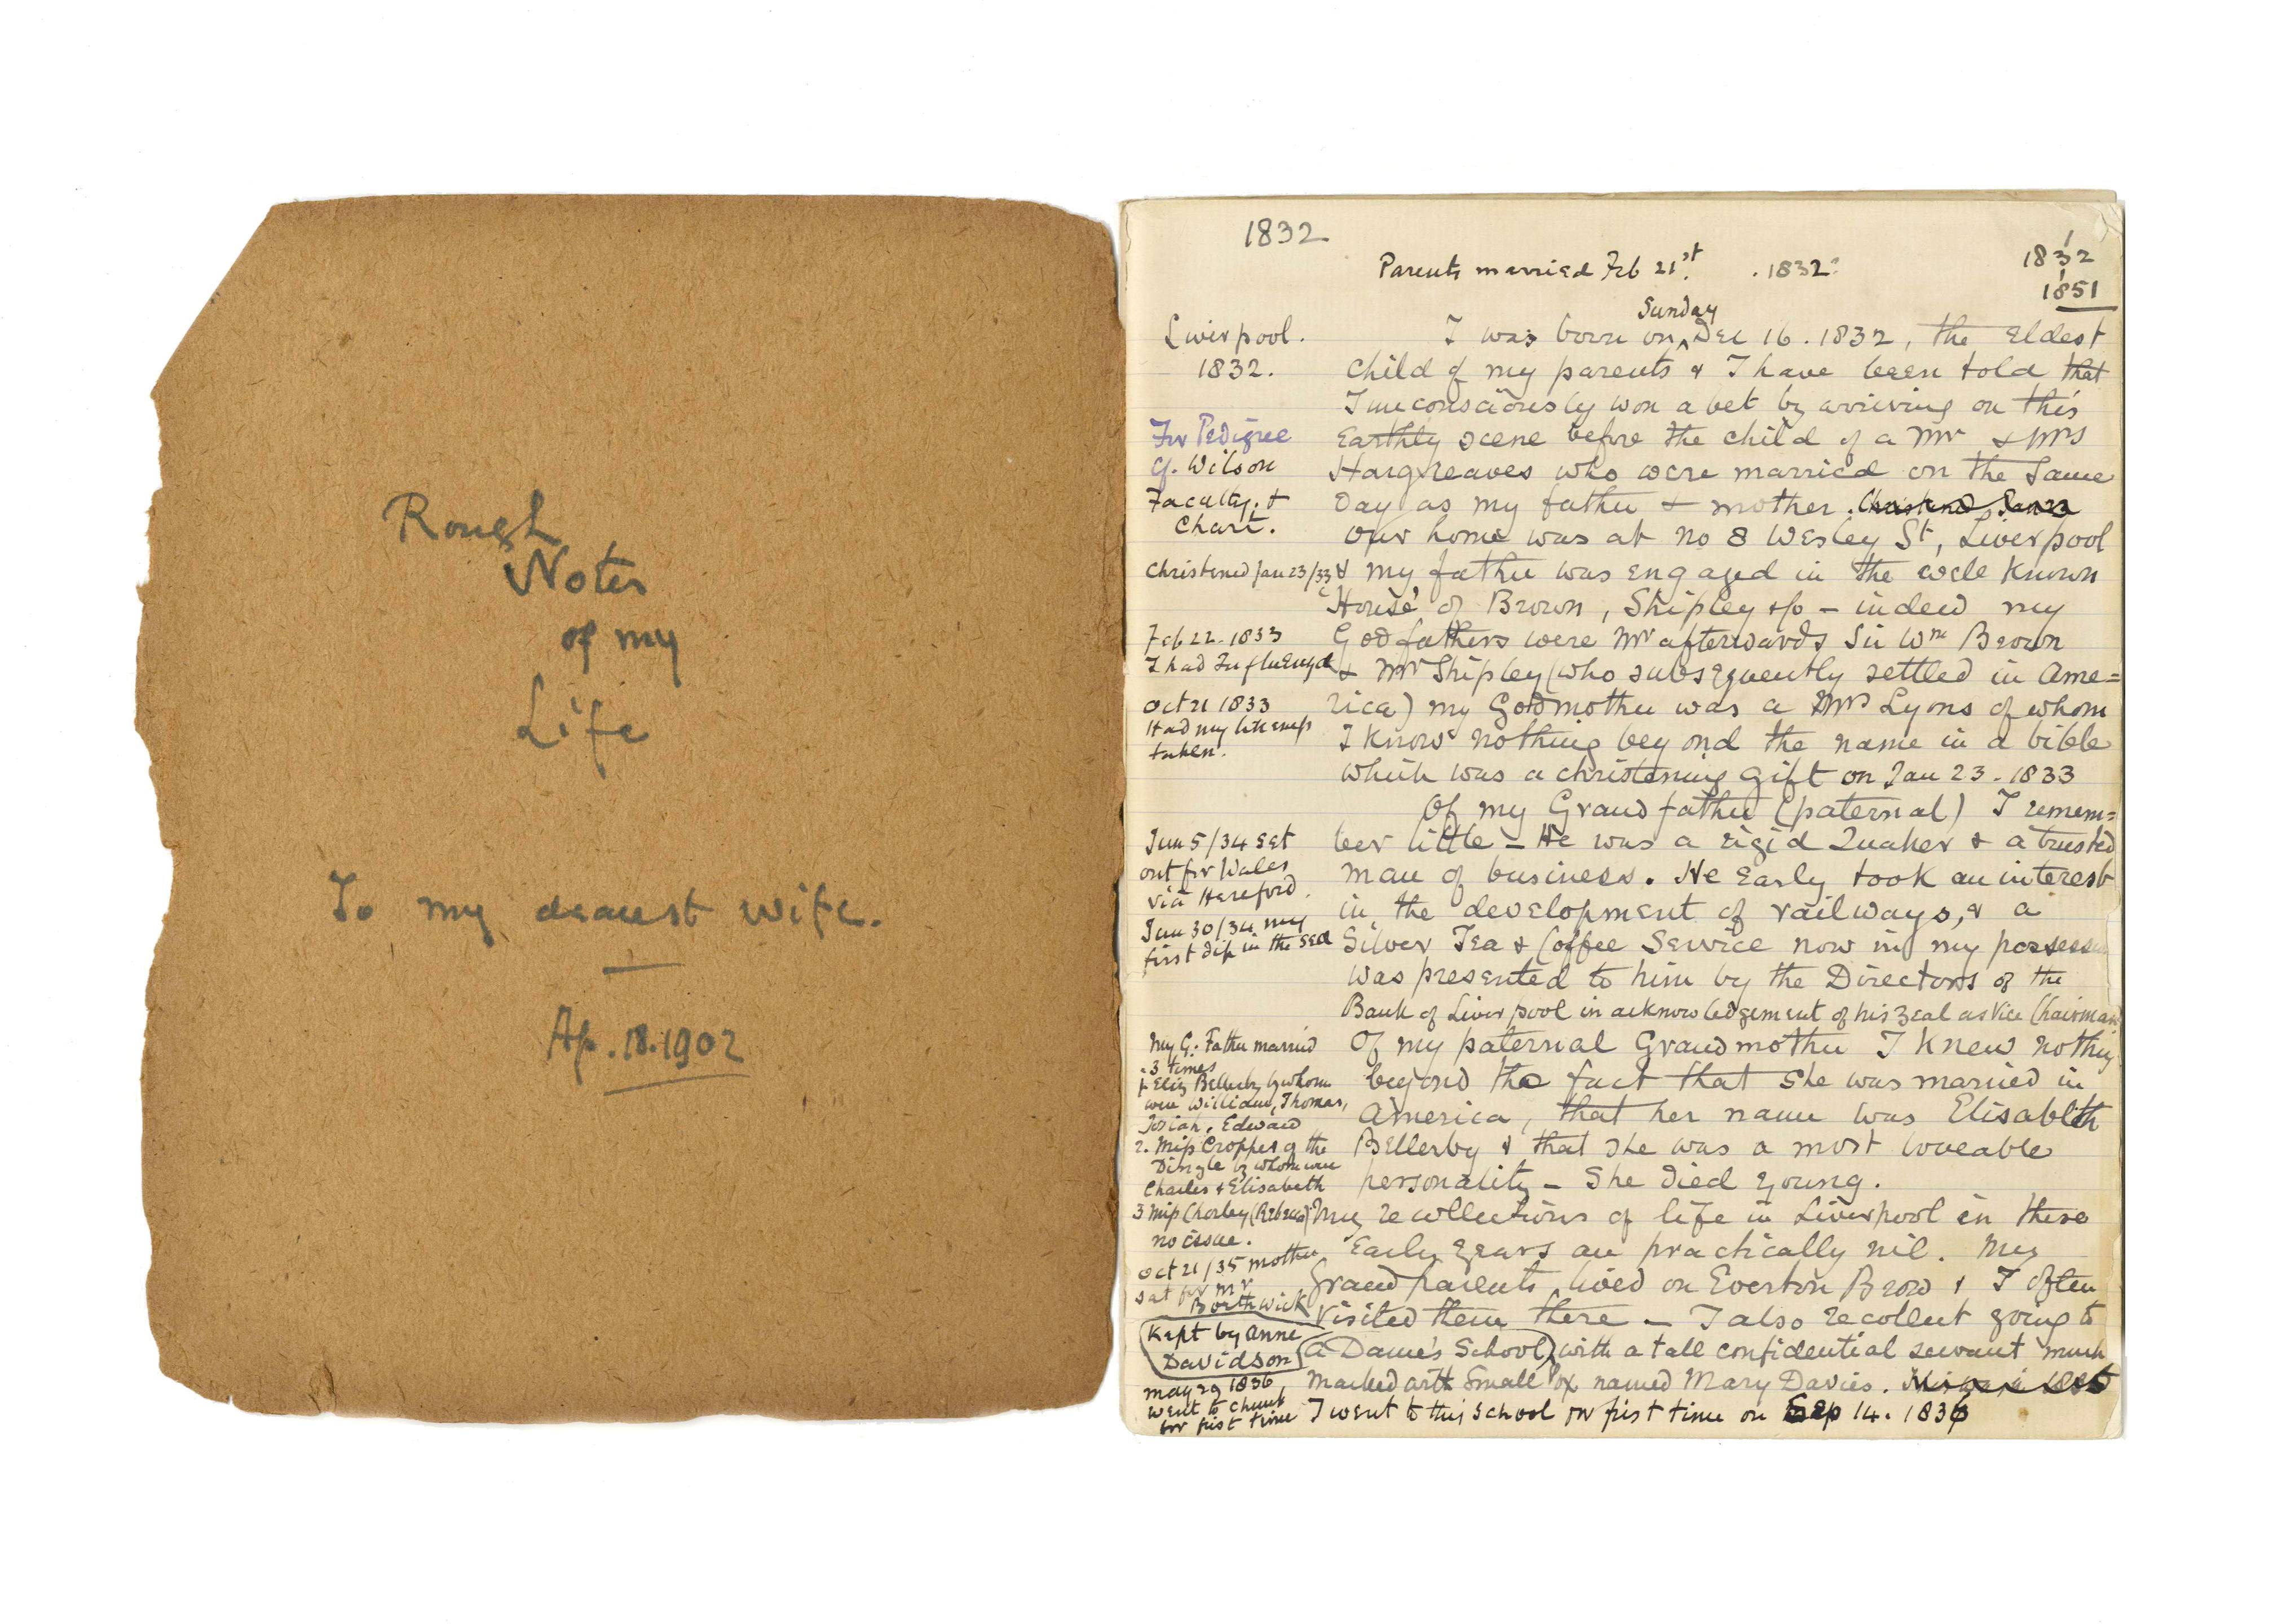 Rough
Notes
of my
Life
To my dearest wife.
Ap. 18. 1902
1832
Parents married Feb 21st. 1832.
1832
1851
Sunday
Liverpool.
1832.
I was born on Dec 16. 1832, the eldest
child of my parents & I have been told that
I unconsciously won a bet by arriving on this
For Pedigree
cf. Wilson
Faculty. &
Chart.
Earthly scene before the child of a Mr & Mrs
Hargreaves who were married on the same
day as my father & mother.
Our home was at No 8 Wesley St, Liverpool
Christened Jan 23/33
& my father was engaged in the well known
'House' of Brown, Shipley & Co - indeed my
Feb 22. 1833
I had Influenza
Godfathers were Mr afterwards Sir Wm Brown
& Mr Shipley (who subsequently settled in Ame=
Oct 21 1833
Had my likeness
taken.
rica) my Godmother was a Mrs Lyons of whom
I know nothing beyond the name in a bible
which was a christening gift on Jan 23. 1833
Of my Grandfather (paternal) I remem=
Jun 5/34 set
out for Wales
via Hereford.
Jun 30/34 my
first dip in the sea
ber little - He was a rigid Quaker & a trusted
man of business. He early took an interest
in the development of railways, & a
Silver Tea & Coffee Service now in my
was presented to him by the Directors of the
Bank of Liverpool in acknowledgement of his zeal as Vice Chairman
My G. Father married
3 times
1. Eliz Bellerby by whom
were William, Thomas,
Josiah, Edward
2. Miss Cropper of the
Dingle by whom were
Charles & Elisabeth
3 Miss Chorley (Rebecca)
no issue.
Of my paternal Grandmother I knew nothing
beyond the fact that she was married in
America, that her name was Elisabeth
Bellerby & that she was a most loveable
personality - She died young.
My recollections of life in Liverpool in these
Early years are practically nil. My
Oct 21/35 mother
sat for Mr
Borthwick
Grandparents lived on Everton Brow & I often
visited them there - I also recollect going to
Kept by Anne
Davidson
a Dame's School, with a tall confidential servant much
marked with small pox named Mary Davies.
May 29 1836,
went to church
for first time
I went to this school for first time on Sep 14. 1836